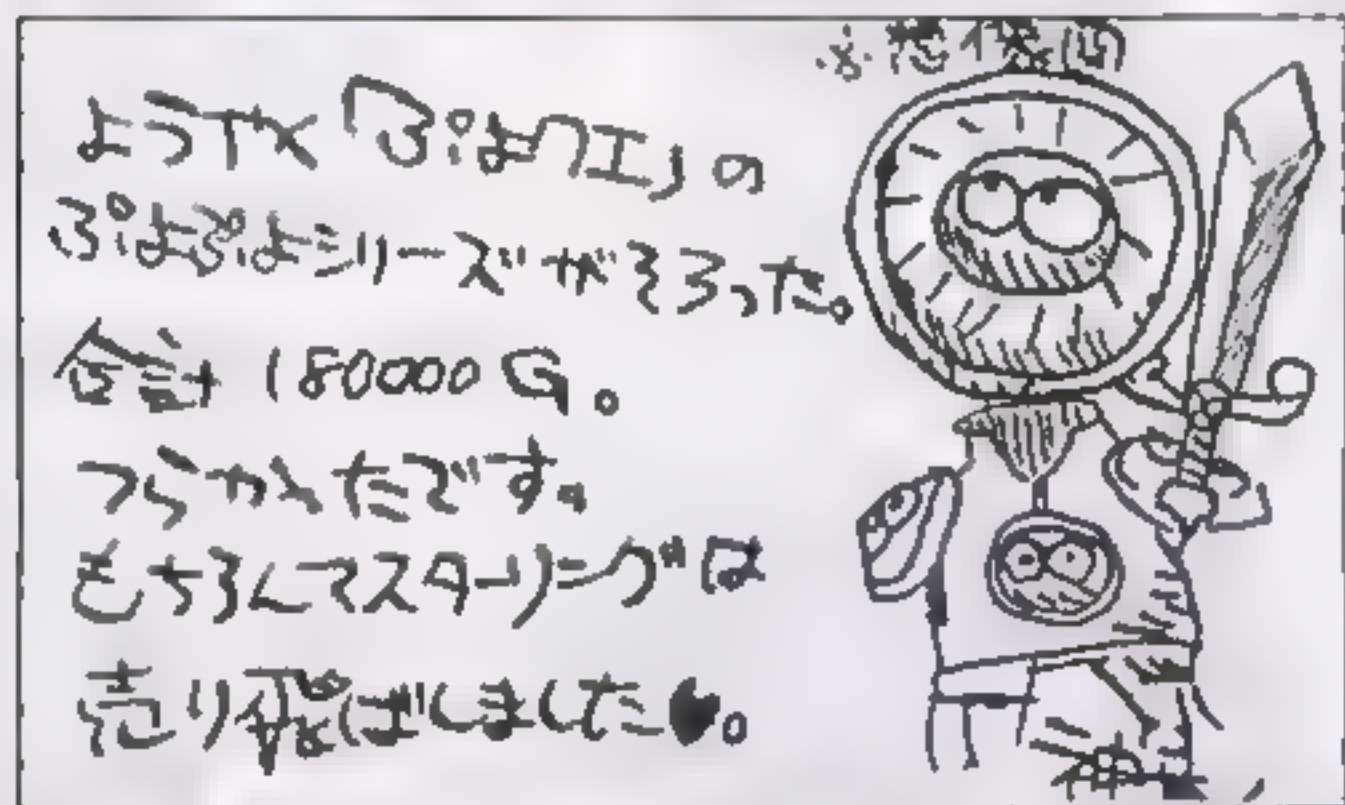 ようやく「ぷよクエ」の
ぷよぷよシリーズがそろった。
合計180000G。
つらかたです。
もちろんマスターリングは
売り飛ばしました♥。